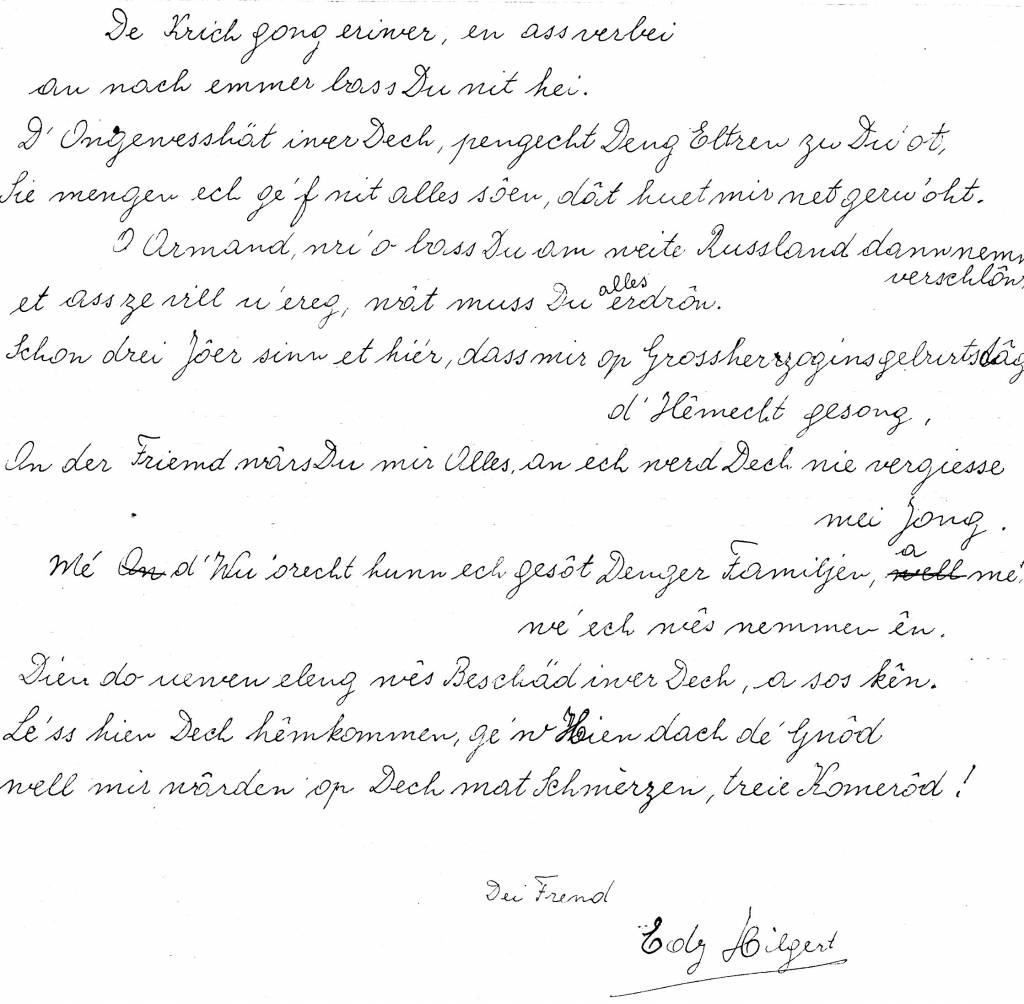 De Krich gong eriwer, en ass verbei
an nach emmer bass Du nit hei.
D' Ongewesshät iwer Dech, pengecht Deng Eltren zu Du'ot,
Sie mengen ech gé'f nit alles sôen, dât huet mir net gerw'oht.
O Armand, wi'o bass Du am weite Russland dann nem
verschlôn,
et ass ze vill u'ereg, wât muss Du alles erdrôn.
Schon drei Jôer sinn et hiér, dass mir op Grossherzoginsgeburtsdâg
d' Hêmecht gesong,
An der Friemd wârs Du mir Alles, an ech werd Dech nie vergiesse
mei Jong.
Mé An d' Wu'orecht hunn ech gesôt Denger Familjen, well a mé
wé ech wês nemmen ên.
Dien do uewen eleng wês Beschäd iwer Dech, a sos kên.
Lé'ss hien Dech hêmkommen, gé'w Hien dach dé Gnôd
well mir wârden op Dech mat Schmèrzen, treie Komerôd!
Dei Frend
Edy Hilgert